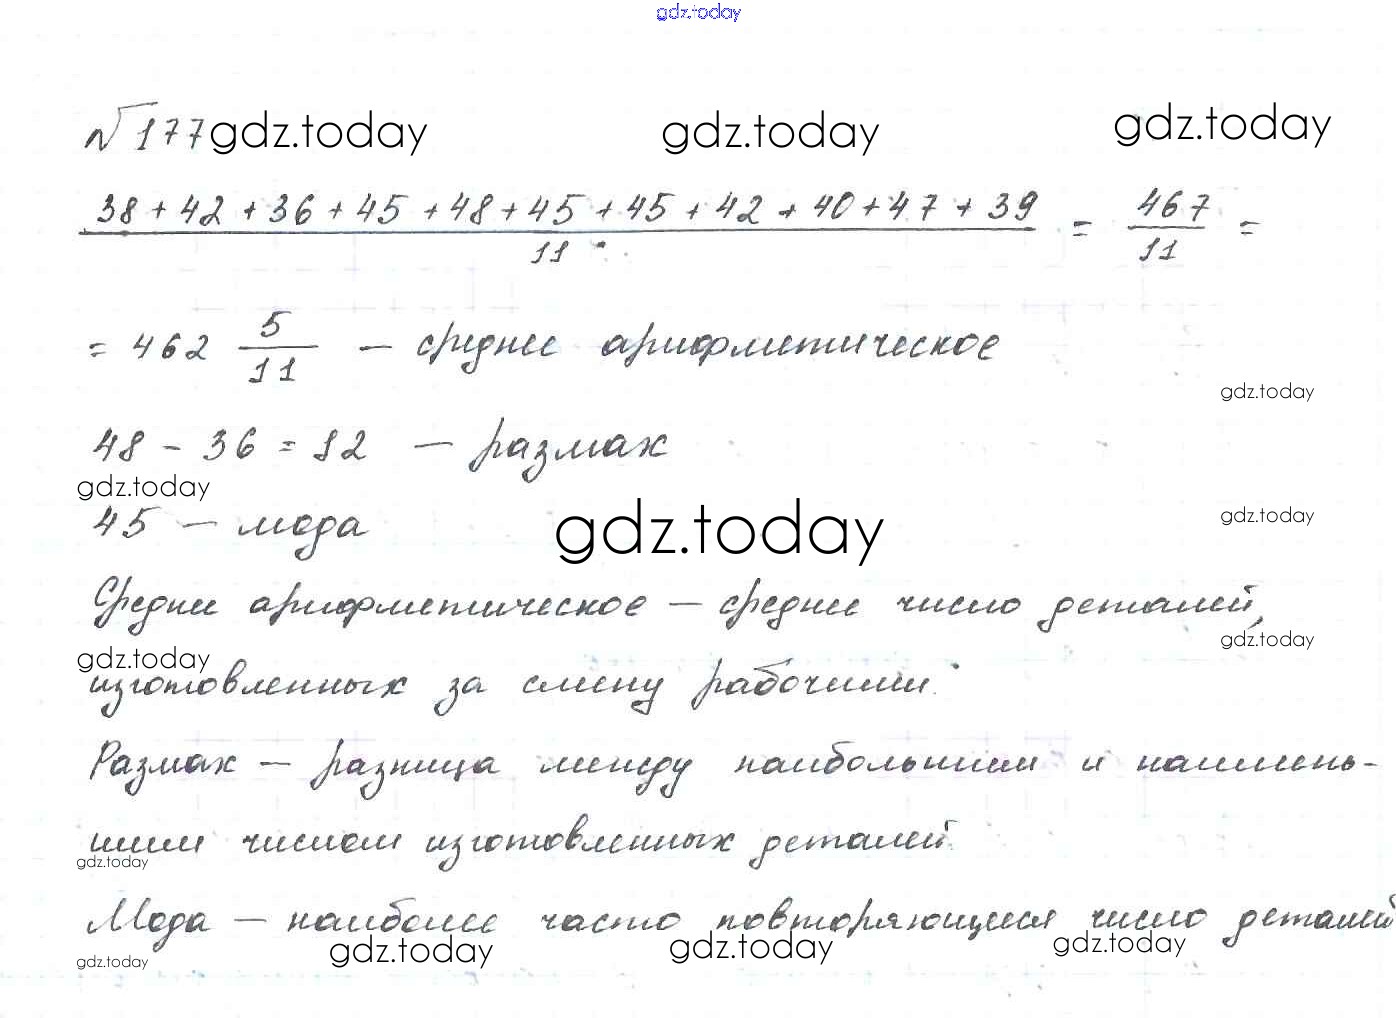 gdz.today
№177 gdz.today gdz.today gdz.today
38 + 42 + 36 + 45 + 48 + 45 + 45 + 42 + 40 + 47 + 39 = 467 =
11 11
= 462 5 — среднее арифметическое
11
gdz.today
48 - 36 = 12 — размах
gdz.today
45 — мода
gdz.today
gdz.today
Среднее арифметическое — среднее число деталей,
gdz.today
gdz.today
изготовленных за смену рабочими.
Размах — разница между наибольшим и наимень-
шим числом изготовленных деталей.
gdz.today
Мода — наиболее часто повторяющееся число деталей
gdz.today gdz.today gdz.today gdz.today